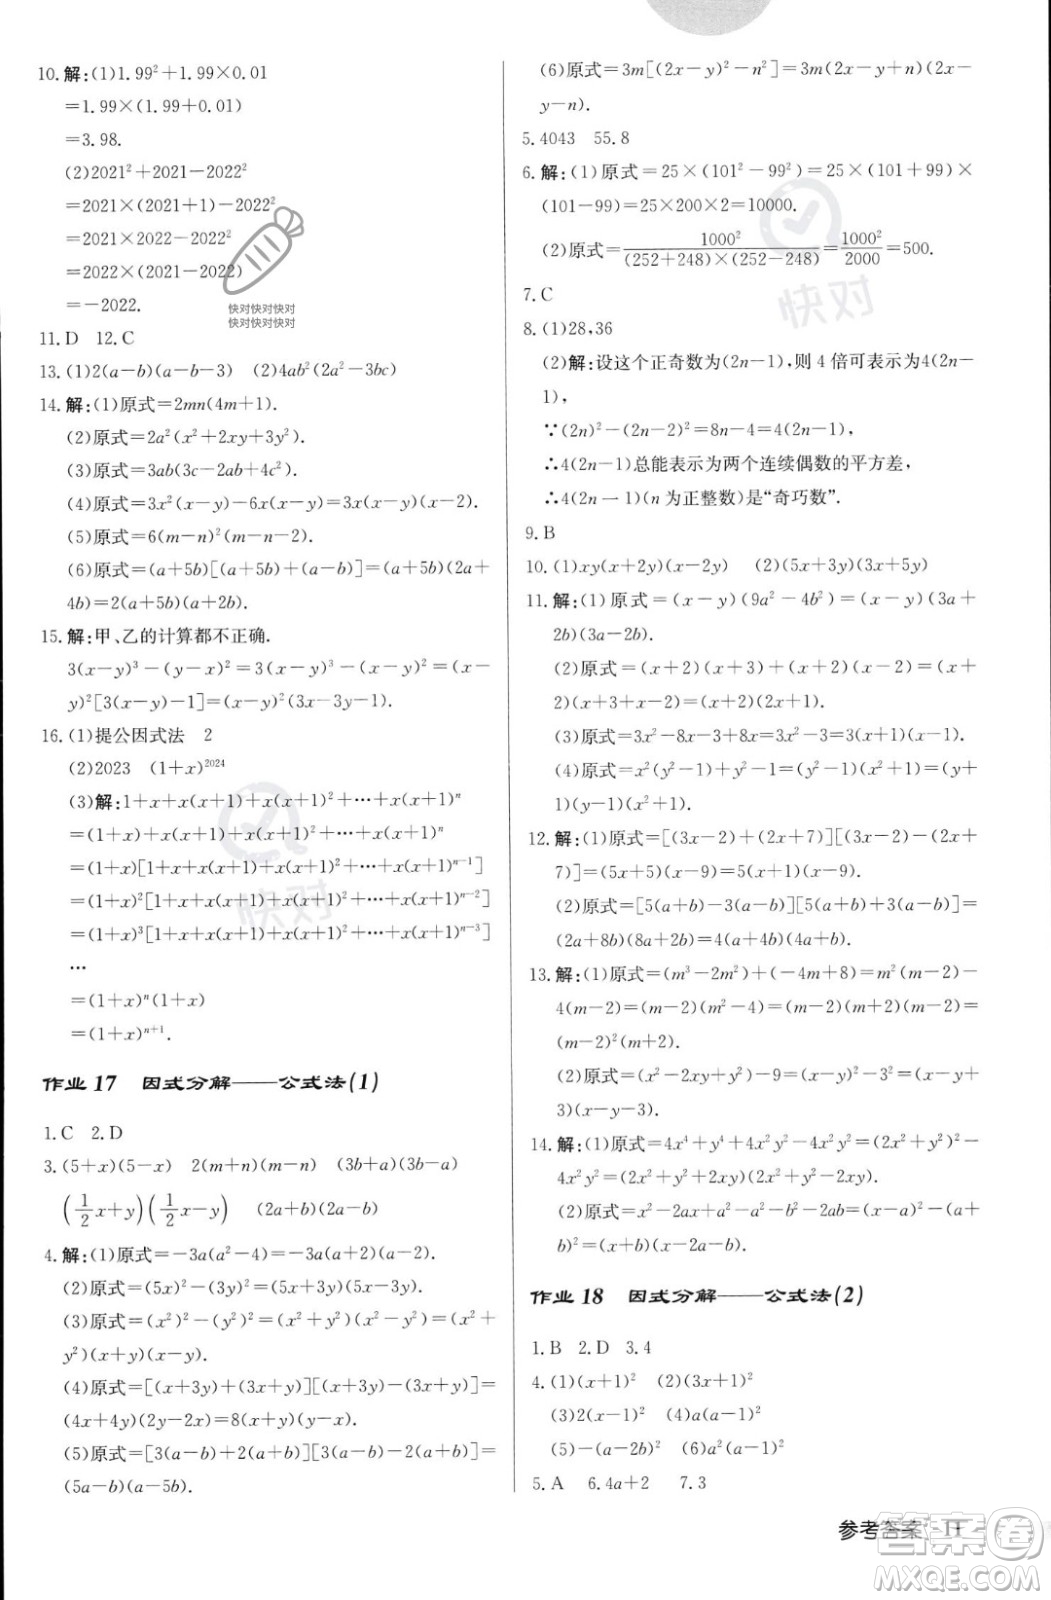 10.解:(1)1.99²+1.99×0.01
=1.99×(1.99+0.01)
=3.98.
(2)2021²+2021-2022²
=2021×(2021+1)-2022²
=2021×2022-2022²
=2022×(2021-2022)
=-2022.
快对快对快对
快对快对快对
11.D 12.C
13.(1)2(a-b)(a-b-3) (2)4ab²(2a²-3bc)
14.解:(1)原式=2mn(4m+1).
(2)原式=2a²(x²+2xy+3y²).
(3)原式=3ab(3c-2ab+4c²).
(4)原式=3x²(x-y)-6x(x-y)=3x(x-y)(x-2).
(5)原式=6(m-n)²(m-n-2).
(6)原式=(a+5b)[(a+5b)+(a-b)]=(a+5b)(2a+
4b)=2(a+5b)(a+2b).
15.解:甲、乙的计算都不正确.
3(x-y)³-(y-x)²=3(x-y)³-(x-y)²=(x-
y)²[3(x-y)-1]=(x-y)²(3x-3y-1).
16.(1)提公因式法 2
(2)2023 (1+x)²⁰²⁴
(3)解:1+x+x(x+1)+x(x+1)²+…+x(x+1)ⁿ
=(1+x)+x(x+1)+x(x+1)²+…+x(x+1)ⁿ
=(1+x)[1+x+x(x+1)+…+x(x+1)ⁿ⁻¹]
=(1+x)²[1+x+x(x+1)+…+x(x+1)ⁿ⁻²]
=(1+x)³[1+x+x(x+1)+…+x(x+1)ⁿ⁻³]
…
=(1+x)ⁿ(1+x)
=(1+x)ⁿ⁺¹.
快对
作业17 因式分解——公式法(1)
1.C 2.D
3.(5+x)(5-x) 2(m+n)(m-n) (3b+a)(3b-a)
(1/2x+y)(1/2x-y) (2a+b)(2a-b)
4.解:(1)原式=-3a(a²-4)=-3a(a+2)(a-2).
(2)原式=(5x)²-(3y)²=(5x+3y)(5x-3y).
(3)原式=(x²)²-(y²)²=(x²+y²)(x²-y²)=(x²+
y²)(x+y)(x-y).
(4)原式=[(x+3y)+(3x+y)][(x+3y)-(3x+y)]=
(4x+4y)(2y-2x)=8(x+y)(y-x).
(5)原式=[3(a-b)+2(a+b)][3(a-b)-2(a+b)]=
(5a-b)(a-5b).
(6)原式=3m[(2x-y)²-n²]=3m(2x-y+n)(2x-
y-n).
5.4043 55.8
6.解:(1)原式=25×(101²-99²)=25×(101+99)×
(101-99)=25×200×2=10000.
(2)原式=1000²/((252+248)×(252-248))=1000²/2000=500.
快对
7.C
8.(1)28,36
(2)解:设这个正奇数为(2n-1),则4倍可表示为4(2n-
1),
∵(2n)²-(2n-2)²=8n-4=4(2n-1),
∴4(2n-1)总能表示为两个连续偶数的平方差,
∴4(2n-1)(n为正整数)是“奇巧数”.
9.B
10.(1)xy(x+2y)(x-2y) (2)(5x+3y)(3x+5y)
11.解:(1)原式=(x-y)(9a²-4b²)=(x-y)(3a+
2b)(3a-2b).
(2)原式=(x+2)(x+3)+(x+2)(x-2)=(x+
2)(x+3+x-2)=(x+2)(2x+1).
(3)原式=3x²-8x-3+8x=3x²-3=3(x+1)(x-1).
(4)原式=x²(y²-1)+(y²-1)=(y²-1)(x²+1)=(y+
1)(y-1)(x²+1).
12.解:(1)原式=[(3x-2)+(2x+7)][(3x-2)-(2x+
7)]=(5x+5)(x-9)=5(x+1)(x-9).
(2)原式=[5(a+b)-3(a-b)][5(a+b)+3(a-b)]=
(2a+8b)(8a+2b)=4(a+4b)(4a+b).
13.解:(1)原式=(m³-2m²)+(-4m+8)=m²(m-2)-
4(m-2)=(m-2)(m²-4)=(m-2)(m+2)(m-2)=
(m-2)²(m+2).
(2)原式=(x²-2xy+y²)-9=(x-y)²-3²=(x-y+
3)(x-y-3).
14.解:(1)原式=4x⁴+y⁴+4x²y²-4x²y²=(2x²+y²)²-
4x²y²=(2x²+y²+2xy)(2x²+y²-2xy).
(2)原式=x²-2ax+a²-a²-b²-2ab=(x-a)²-(a+
b)²=(x+b)(x-2a-b).
作业18 因式分解——公式法(2)
1.B 2.D 3.4
4.(1)(x+1)² (2)(3x+1)²
(3)2(x-1)² (4)a(a-1)²
(5)-(a-2b)² (6)a²(a-1)²
5.A 6.4a+2 7.3
参考答案 11
答案卷
MXQE.COM